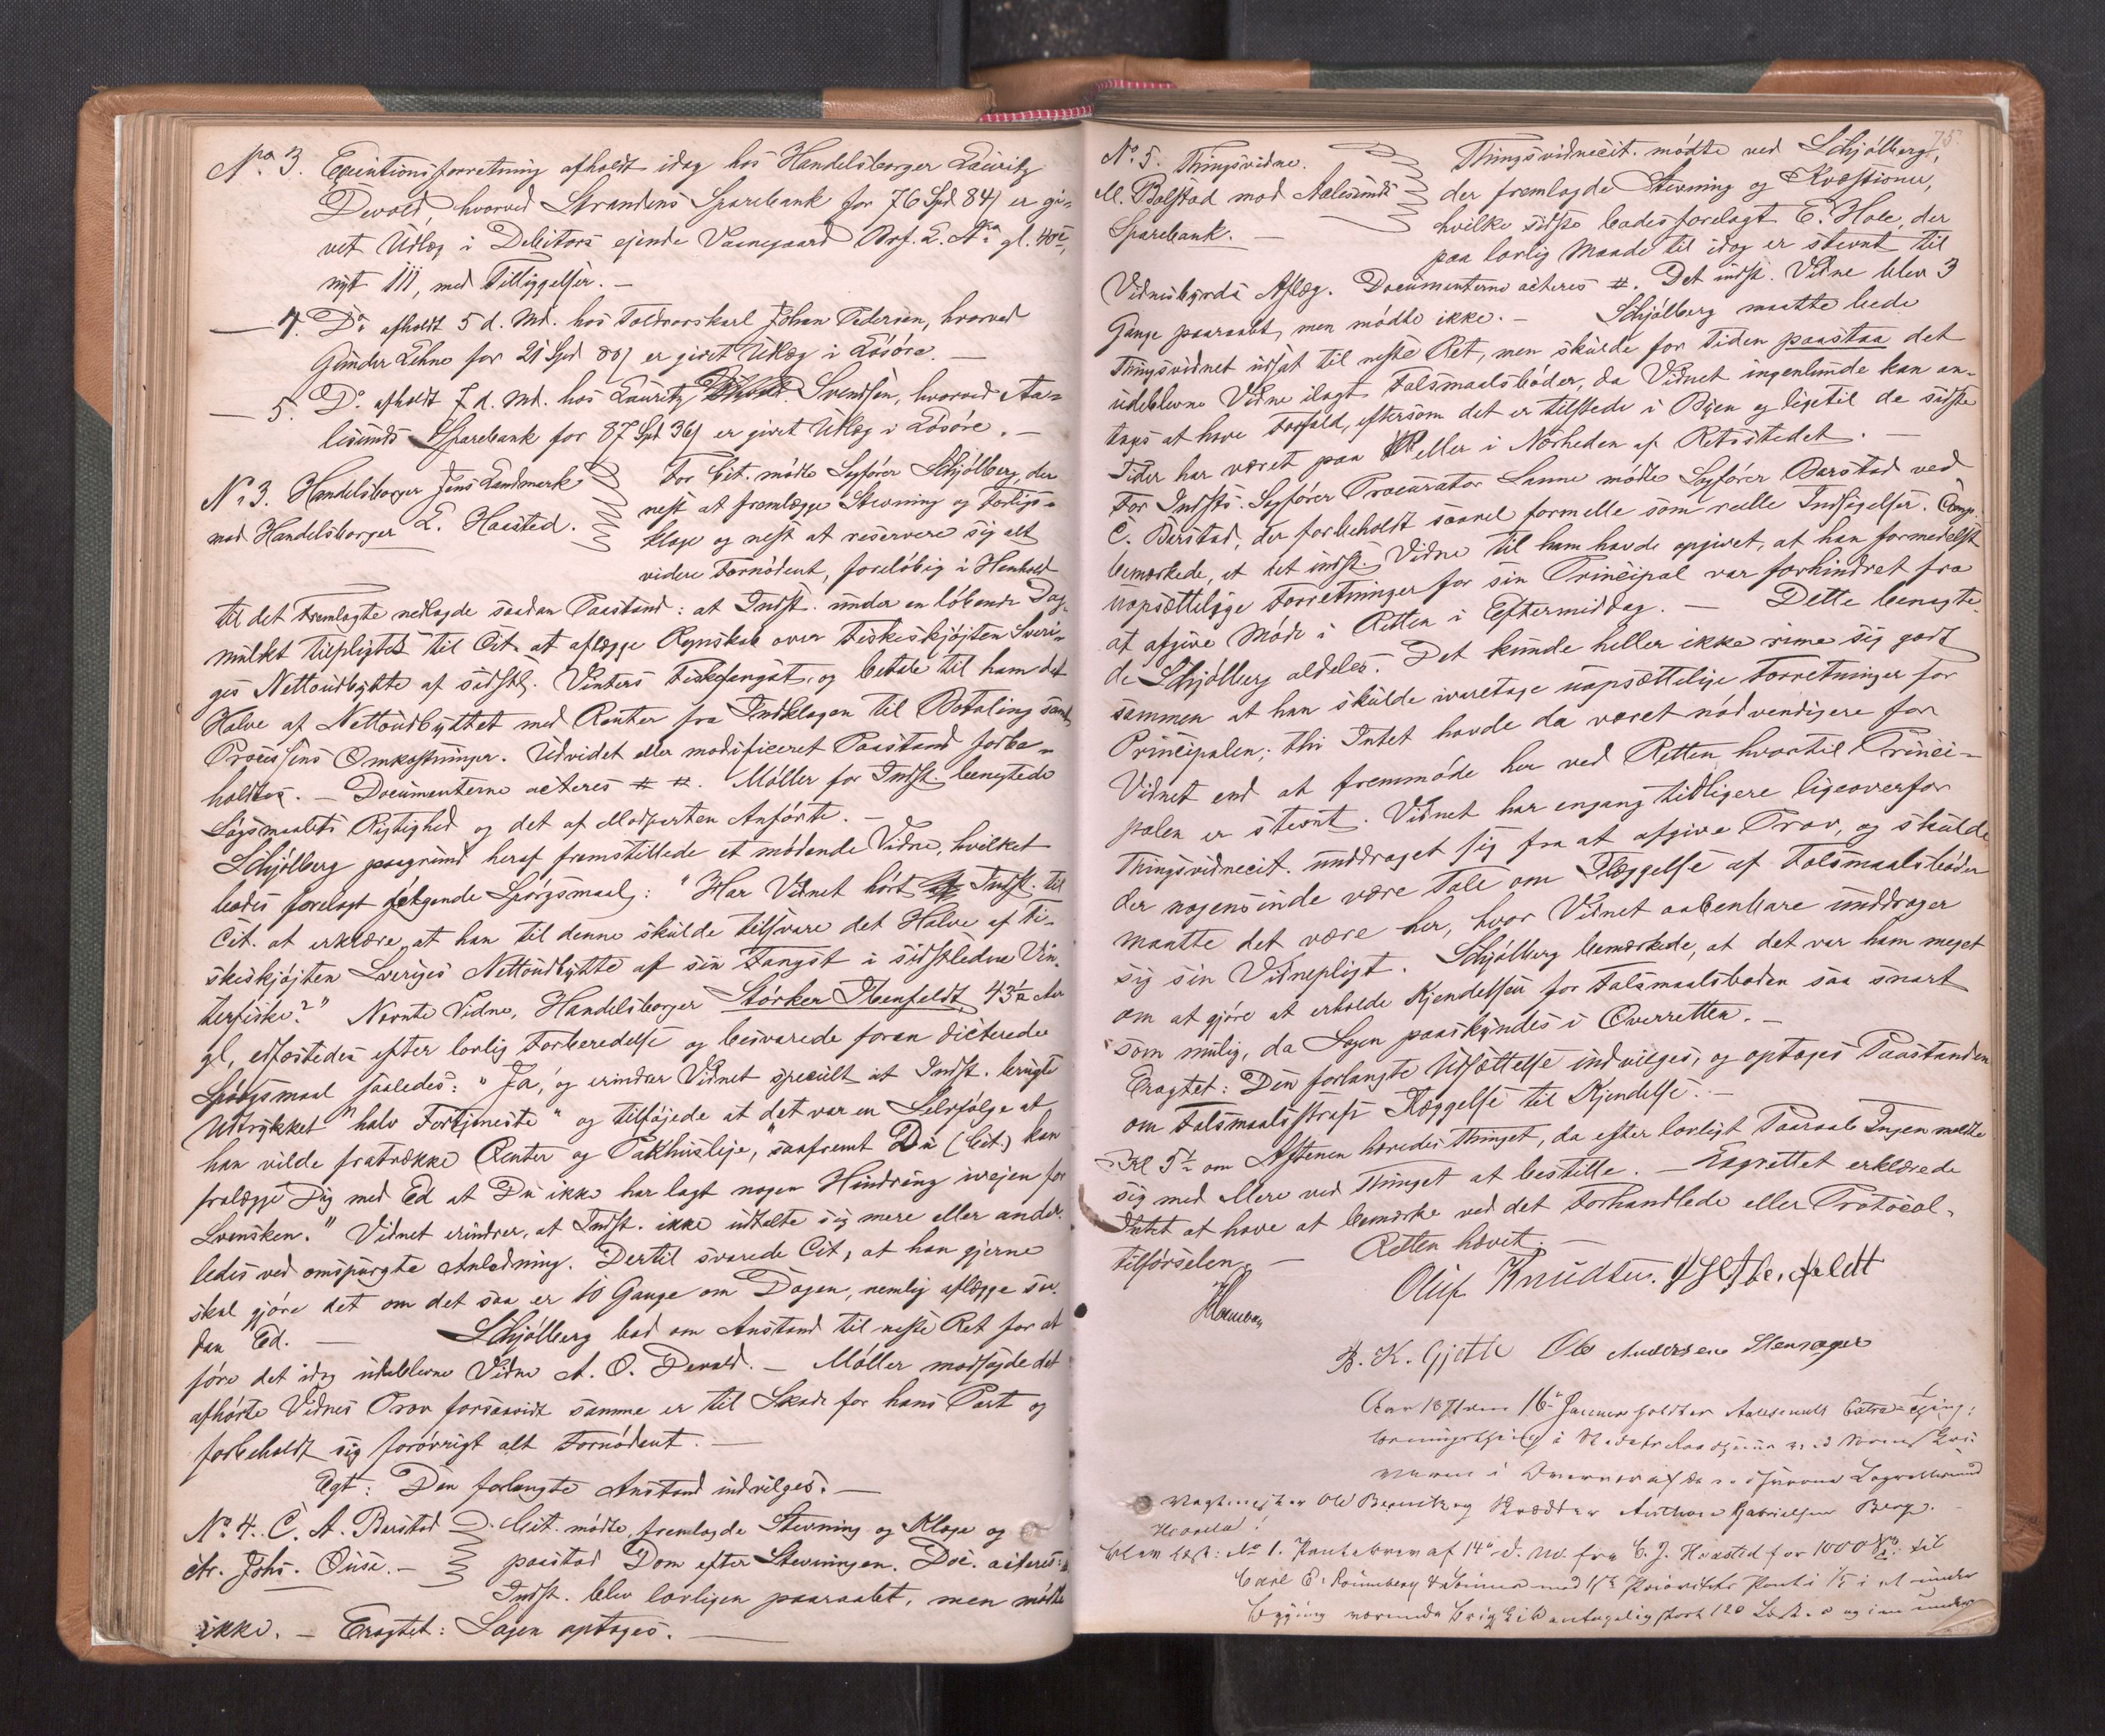 No. 3. Exekutionsforretning afholdt idag hos Handelsborger Lauritz
Devold, hvorved Strandens Sparebank for 76 Spd 84 s er gi-
vet Udlæg i Debitors ejende Vaanegaard Brf. L. No. gl.
nyt 111, med Tilliggelser. —
— 4. Do. afholdt 5 d. Md. hos Toldroerskarl Johan Pedersen, hvorved
Gunder Lehne for 21 Spd er givet Udlæg i Lösöre. —
— 5. Do. afholdt 7 d. Md. hos Lauritz Svendsen, hvorved Aa-
lesunds Sparebank for 87 Spd 36 s er givet Udlæg i Lösöre. —
No. 3. Handelsborger Jens Landmark
mod Handelsborger L. Haasted.
For Cit. mödte Sagförer Schjölberg, der
nest at fremlægge Stevning og Forligs-
klage og nest at reservere sig alt
videre Fornödent, forelöbig i Henhold
til det Fremlagte nedlagde saadan Paastand: at Indst. under en löbende Dag-
mulkt tilpligtes til Cit. at aflægge Regnskab over Fiskeskjöjten Sveri-
ges Nettoudbytte af sidstl. Vinters Fiskefangst, og betale til ham det
Halve af Nettoudbyttet med Renter fra Indklagen til Betaling samt
Processens Omkostninger. Udvidet eller modificeret Paastand forbe-
holdtes. — Documenterne acteres # #. Möller for Indst. benegtede
Sögsmaalets Rigtighed og det af Modparten Anförte. —
Schjölberg paagrund heraf fremstillede et mödende Vidne, hvilket
bedes forelagt fölgende Spörgsmaal: "Har Vidnet hört Indst. til
Cit. at erklære, at han til denne skulde tilsvare det Halve af Fi-
skeskjöjten Sveriges Nettoudbytte af sin Fangst i sidstledne Vin-
terfiske?" Nævnte Vidne, Handelsborger Störker Ibenfeldt, 43½ Aar
gl., edfæstedes efter lovlig Forberedelse og besvarede foran dicterede
Spörgsmaal saaledes: "Ja, og erindrer Vidnet specielt at Indst. brugte
Udtrykket "halv Fortjeneste" og tilföjede at det var en Selvfölge at
han vilde fratrække Renter og Pakhusleje, "saafremt Du (Cit.) kan
fralægge Dig med Ed at Du ikke har lagt nogen Hindring ivejen for
Svensken." Vidnet erindrer, at Indst. ikke udtalte sig mere eller ander-
ledes ved omspurgte Anledning. Dertil svarede Cit., at han gjerne
skal gjöre det om det saa er 10 Gange om Dagen, nemlig aflægge saa-
dan Ed. — Schjölberg bad om Anstand til neste Ret for at
före det idag udeblevne Vidne A. O. Devold. — Möller modsagde det
afhörte Vidnes Prov forsaavidt samme er til Skade for hans Part og
forbeholdt sig forövrigt alt Fornödent. —
Egt: Den forlangte Anstand indvilges. —
No. 4. C. A. Barstad
ctr. Johs. Ouse. —
Cit. mödte, fremlagde Stevning og Klage og
paastod Dom efter Stevningen. Doc. acteres: #
Indst. blev lovligen paaraabt, men mödte
ikke. — Eragtet: Sagen optages. —
75
No. 5. Thingsvidne.
M. Bolstad mod Aalesunds
Sparebank. —
Thingsvidnecit. mödte ved Schjölberg,
der fremlagde Stevning og Kvæstioner,
hvilke sidste bedes forelagt E. Hole, der
paa lovlig Maade til idag er stevnt til
Vidnesbyrds Aflæg. Documenterne acteres #. Det indst. Vidne blev 3
Gange paaraabt, men mödte ikke. — Schjölberg maatte bede
Thingsvidnet udsat til neste Ret, men skulde for tiden paastaa det
udeblevne Vidne ilagt Falsmaalsböder, da Vidnet ingenlunde kan an-
tages at have Forfald, eftersom det er tilstede i Byen og ligetil de sidste
Tider har været paa eller i Nærheden af Retsstedet. —
For Indsts. Sagförer Procurator Lunne mödte Sagförer Barstad ved
C. Barstad, der forbeholdt saavel formelle som reelle Indsigelser. Comp.
bemærkede, at det indst. Vidne til ham havde opgivet, at han formedelst
uopsættelige Forretninger for sin Principal var forhindret fra
at afgive Möde i Retten i Eftermiddag. — Dette benegte-
de Schjölberg aldeles. Det kunde heller ikke rime sig godt
sammen at han skulde ivaretage uopsættelige Forretninger for
Principalen; thi Intet havde da været nödvendigere for
Vidnet end at fremmöde her ved Retten, hvortil Princi-
palen er stevnt. Vidnet har engang tidligere ligeoverfor
Thingsvidnecit. unddraget sig fra at afgive Prov, og skulde
der nogensinde være Tale om Ilæggelse af Falsmaalsböder
maatte det være her, hvor Vidnet aabenbare unddrager
sig sin Vidnepligt. Schjölberg bemærkede, at det var ham meget
om at gjöre at erholde Kjendelsen for Falsmaalsboden saa snart
som mulig, da Sagen paaskyndes i Overretten. —
Eragtet: Den forlangte Udsættelse indvilges, og optages Paastanden
om Falsmaalsstrafs Ilæggelse til Kjendelse. —
Kl 5½ om Aftenen hævedes Thinget, da efter lovligt Paaraab Ingen meldte
sig med Mere ved Thinget at bestille. — Lagrettet erklærede
Intet at have at bemærke ved det Forhandlede eller Protocol-
tilförselen. — Retten hævet. —
Oluf Knudsen.
B. K. Gjette Ole Andersen Stensager
Aar 16 Januar holdtes Aalesunds Extra-
Ole Berg.
No 1. Pantebrev af 14 d. Md. fra C. J. Haasted for 1000 til
Carl E. Rönneberg &